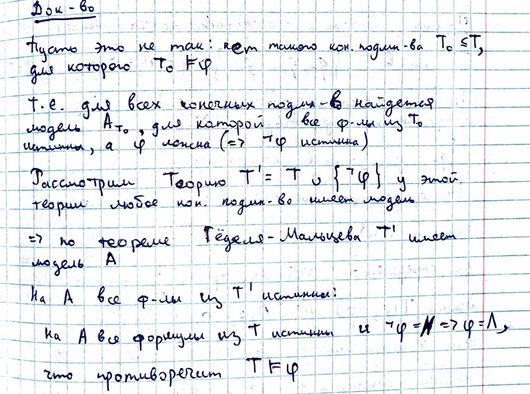 Док-во
Пусть это не так: нет такого кон. подмн-ва T₀ ⊆ T,
для которого T₀ ⊨ φ
Т.е. для всех конечных подмн-в найдется
модель A_T₀, для которой все ф-лы из T₀
истинны, а φ ложна (=> ¬φ истинна)
Рассмотрим Теорию T' = T ∪ {¬φ} у этой
теории любое кон. подмн-во имеет модель
=> по теореме Гёделя-Мальцева T' имеет
модель A
На A все ф-лы из T' истинны:
на A все формулы из T истинны и ¬φ = И => φ = Л,
что противоречит T ⊨ φ